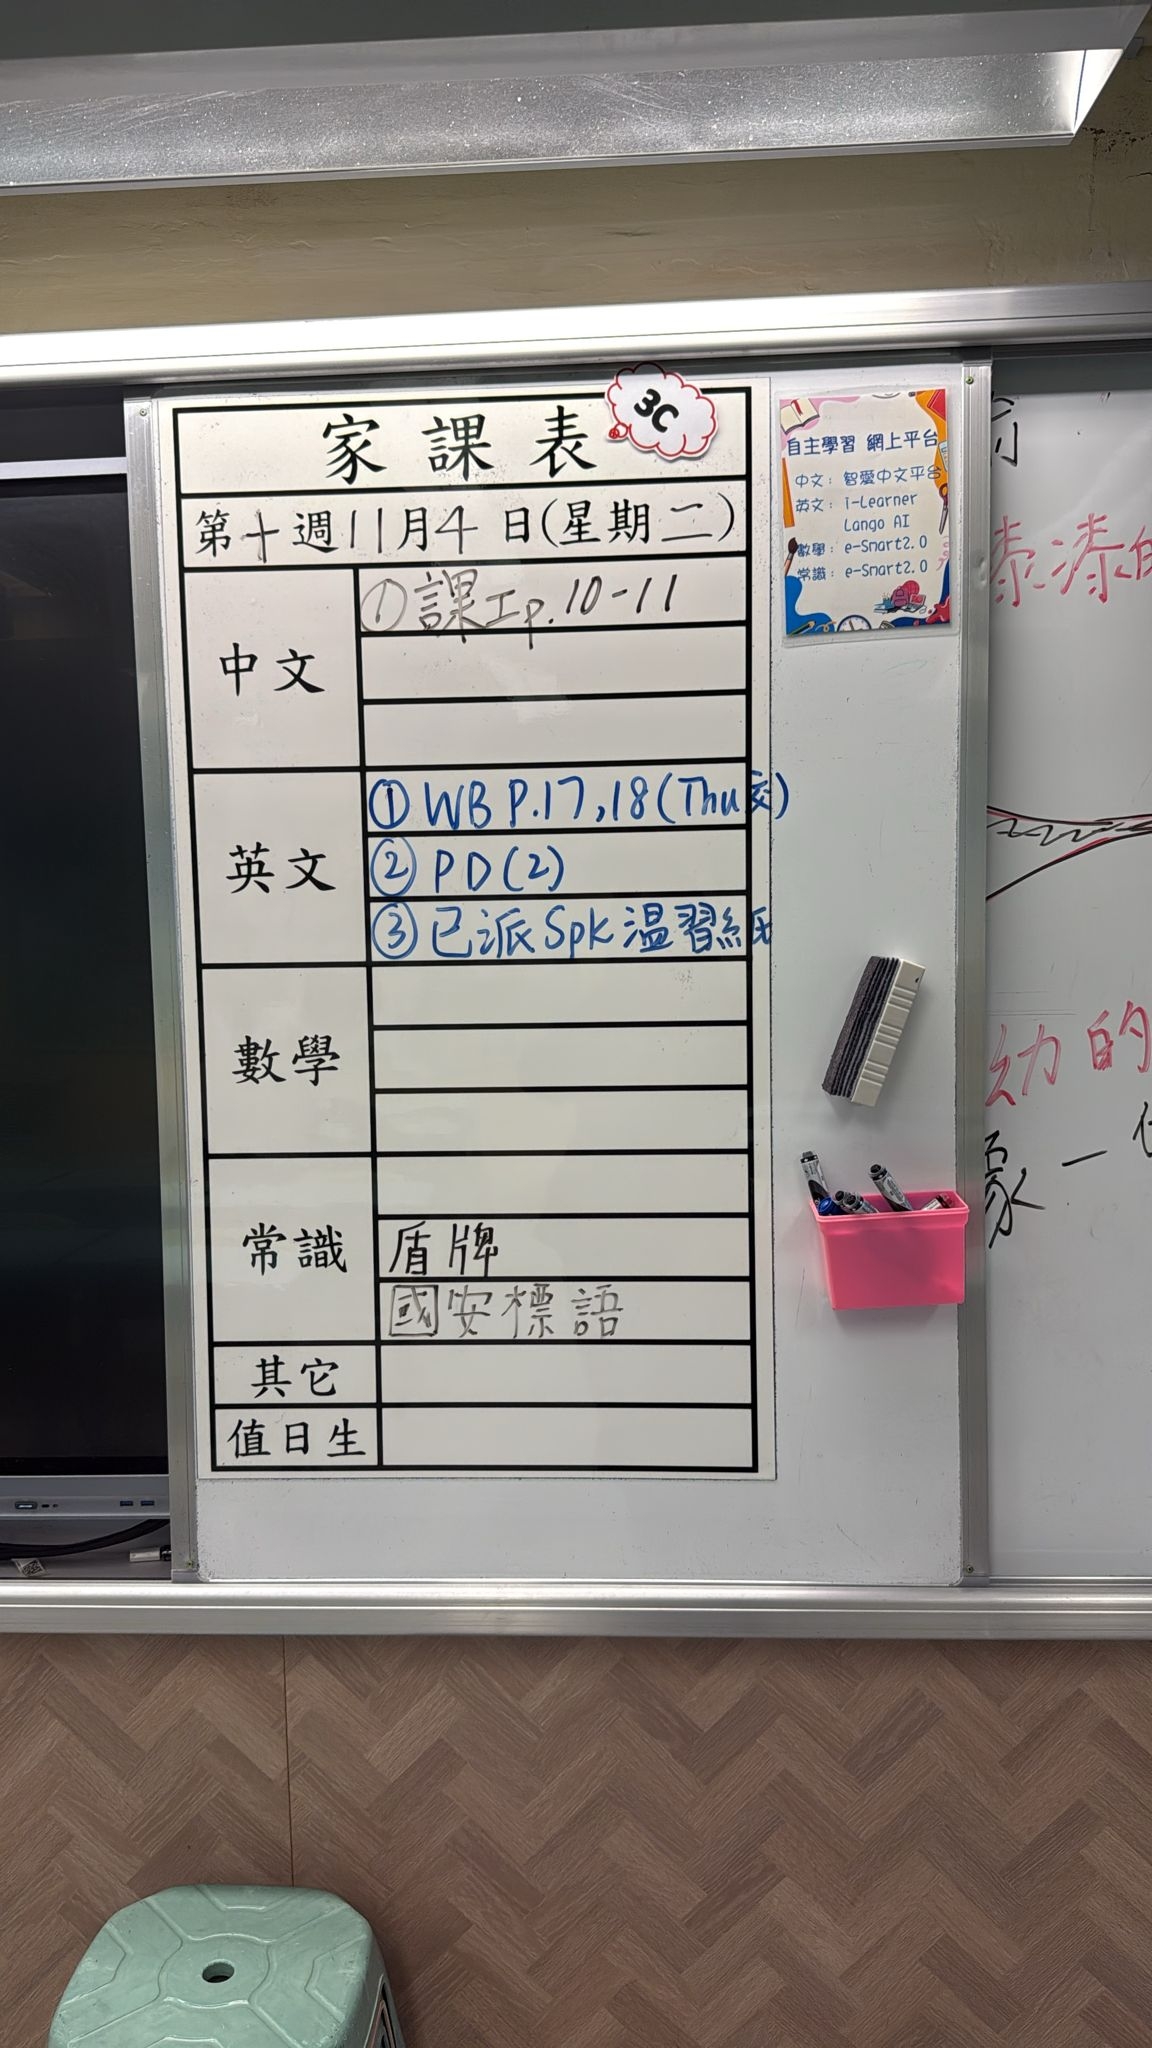 家課表
3C
第十週11月4日(星期二)
中文
① 課工p.10-11
英文
① WB P.17,18(Thu交)
② PD(2)
③ 已派Spk溫習紙
數學
常識
盾牌
國安標語
其它
值日生
自主學習 網上平台
中文：智愛中文平台
英文：i-Learner
Lango AI
數學：e-Smart2.0
常識：e-Smart2.0
漆漆的
幼的
象一